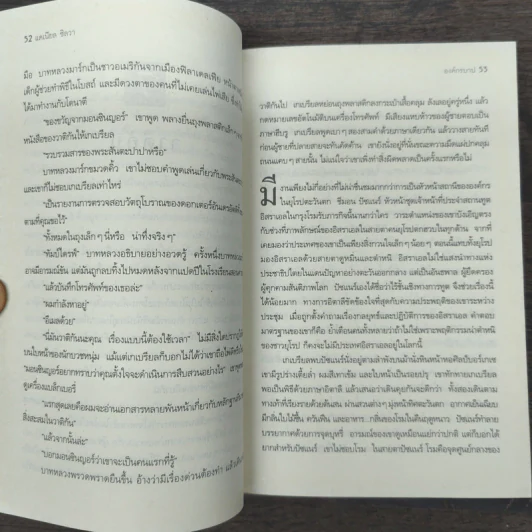 52 แดเนียล ซิลวา
มือ บาทหลวงมาร์กเป็นชาวอเมริกันจากเมืองฟิลาเดลเฟีย
เด็กผู้ช่วยทำพิธีในโบสถ์ และมีดวงตาของคนที่ไม่เคยเล่นไพ่เสีย
ได้มาทำงานกับโดนาติ
"ของขวัญจากมอนซินญอร์" เขาพูด พลางยื่นถุงพลาสติกเล็กๆ
หนังสือของวาติกันให้เกเบรียล
"รวบรวมสารของพระสันตะปาปาหรือ"
บาทหลวงมาร์กขมวดคิ้ว เขาไม่ชอบคำพูดเล่นเกี่ยวกับ
และเขาก็ไม่ชอบเกเบรียลเท่าไหร่
"เป็นรายงานการตรวจสอบวัตถุโบราณของดอกเตอร์อันเดรอัตติ
ตามที่คุณขอไว้"
"ทั้งหมดในถุงเล็กๆ นี่หรือ น่าทึ่งจริงๆ"
"ทัมป์ไดรฟ์" บาทหลวงอธิบายอย่างอวดรู้ ครึ่งหนึ่งบาทหลวง
อาจมีอารมณ์ขัน แต่มันถูกลบทิ้งไปหมดหลังจากแปดปีในโรงเรียนสอน
"แล้วบันทึกโทรศัพท์ของเธอล่ะ"
"ผมกำลังหาอยู่"
"อีเมลด้วย"
"นี่มันวาติกันนะคุณ เรื่องแบบนี้ต้องใช้เวลา" ไม่มีสิ่งใด
บนใบหน้าของนักบวชหนุ่ม แม้แต่เกเบรียลก็บอกไม่ได้ว่าเขาถือไพ่
"มอนซินญอร์อยากทราบว่าคุณตั้งใจจะดำเนินการสืบสวนอย่างไร"
ดูเครื่องแบล็กเบอร์รี่
"แรกสุดเลยคือผมจะอ่านเอกสารหลายพันหน้าเกี่ยวกับ
สิ่งสะสมในวาติกัน"
"แล้วจากนั้นล่ะ"
"บอกมอนซินญอร์ว่าเขาจะเป็นคนแรกที่รู้"
บาทหลวงพรวดพราดยืนขึ้น อ้างว่ามีเรื่องด่วนต้องทำ
องค์กรบาป 53
วาติกันไป เกเบรียลหย่อนถุงพลาสติกลงกระเป๋าเสื้อคลุม ลังเลอยู่ครู่หนึ่ง แล้ว
กดหมายเลขอัตโนมัติบนเครื่องโทรศัพท์ มีเสียงแหบห้าวของผู้ชายตอบเป็น
ภาษาฮีบรู เกเบรียลพูดเบาๆ สองสามคำด้วยภาษาเดียวกัน แล้ววางสายทันที
ก่อนผู้ชายที่ปลายสายจะทันคัดค้าน เขายังนั่งอยู่ที่นั่นขณะความมืดแผ่ปกคลุม
ถนนแคบๆ สายนั้น ไม่แน่ใจว่าเขาเพิ่งทำสิ่งผิดพลาดเป็นครั้งแรกหรือไม่
มีงานเพียงไม่กี่อย่างที่ไม่น่าชื่นชมมากกว่าการเป็นหัวหน้าสถานีขององค์กร
ในยุโรปตะวันตก ชิมอน ปัซเนร์ หัวหน้าชุดเจ้าหน้าที่ประจำสถานทูต
อิสราเอลในกรุงโรมรับภารกิจนี้นานกว่าใคร วาระตำแหน่งของเขาบังเอิญตรง
กับช่วงที่ภาพลักษณ์ของอิสราเอลในสายตาคนยุโรปตกฮวบในทุกด้าน จากที่
เคยมองว่าประเทศของเขาเป็นเพียงสิ่งกวนใจเล็กๆ น้อยๆ ตอนนี้แทบทั้งยุโรป
มองอิสราเอลด้วยสายตาดูหมิ่นและโกรธ อิสราเอลไม่ใช่แสงนำทางแห่ง
ประชาธิปไตยในแดนปัญหาอย่างตะวันออกกลาง แต่เป็นอันธพาล ผู้ยึดครอง
ผู้คุกคามสันติภาพโลก ปัซเนร์เองอาจพอจะใช้ชั้นเชิงทางการทูต จึงช่วยเรื่องนี้
ได้น้อยมาก ทางการอิตาลีขีดข้องใจที่สุดกับความประพฤติของเขาระหว่าง
ประชุม เมื่อถูกตั้งคำถามเรื่องกลยุทธ์และปฏิบัติการทหารของอิสราเอล คำตอบ
มาตรฐานของเขาก็คือ ย้ำเตือนคนทั้งหลายว่าถ้าไม่ใช่เพราะพฤติกรรมน่าตำหนิ
ของชาวยุโรป ก็คงจะไม่มีประเทศอิสราเอลอยู่ในโลกนี้
เกเบรียลพบปัซเนร์นั่งอยู่ตามลำพังบนม้านั่งหินหน้าหอศิลป์บอร์เกเซ
เขามีรูปร่างเตี้ยล่ำ ผมสีเทาเข้ม และใบหน้าเป็นรอยปรุ เขาทักทายเกเบรียล
พอเป็นพิธีด้วยภาษาอิตาลี แล้วเสนอว่าเดินคุยกันจะดีกว่า ทั้งสองเดินตาม
ทางเท้าที่เรียงรายด้วยต้นสน ผ่านสวนต่างๆ มุ่งหน้าทิศตะวันตก อากาศเย็นเฉียบ
มีกลิ่นใบไม้ชื้น ควันฟืน และอาหาร กลิ่นของโรมในคืนฤดูหนาว ปัซเนร์ทำลาย
บรรยากาศด้วยการจุดบุหรี่ อารมณ์ของเขาดูเหมือนแย่กว่าปกติ แต่ก็บอกได้
ยากสำหรับปัซเนร์ เขาไม่ชอบโรม ในสายตาปัซเนร์ โรมคือจุดศูนย์กลางของ